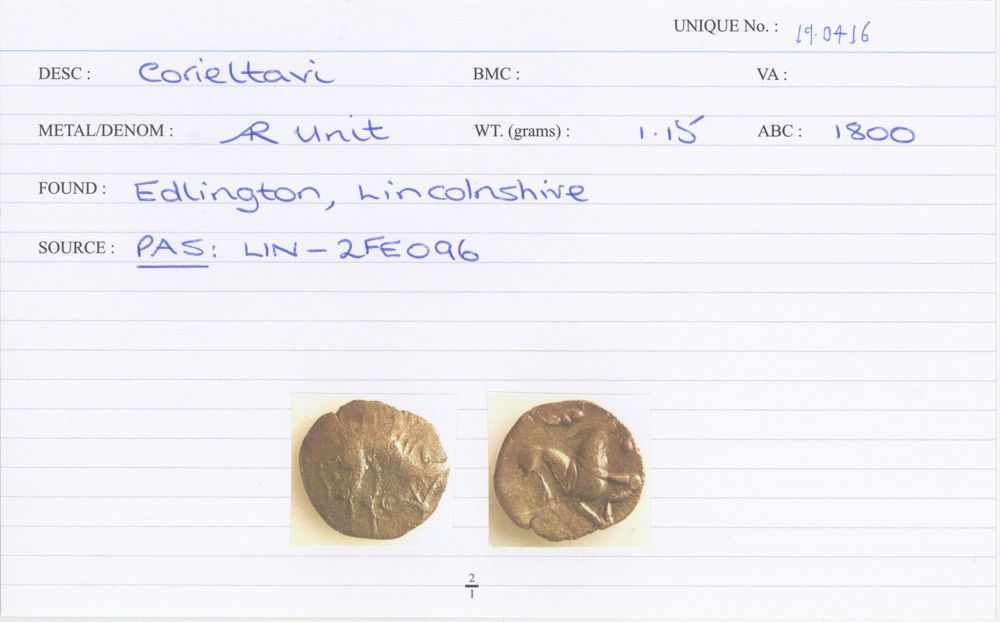 UNIQUE No. : 19.0416
DESC : Corieltavi BMC : VA :
METAL/DENOM : AR Unit WT. (grams) : 1.15 ABC : 1800
FOUND : Edlington, Lincolnshire
SOURCE : PAS: LIN-2FE096
2
1